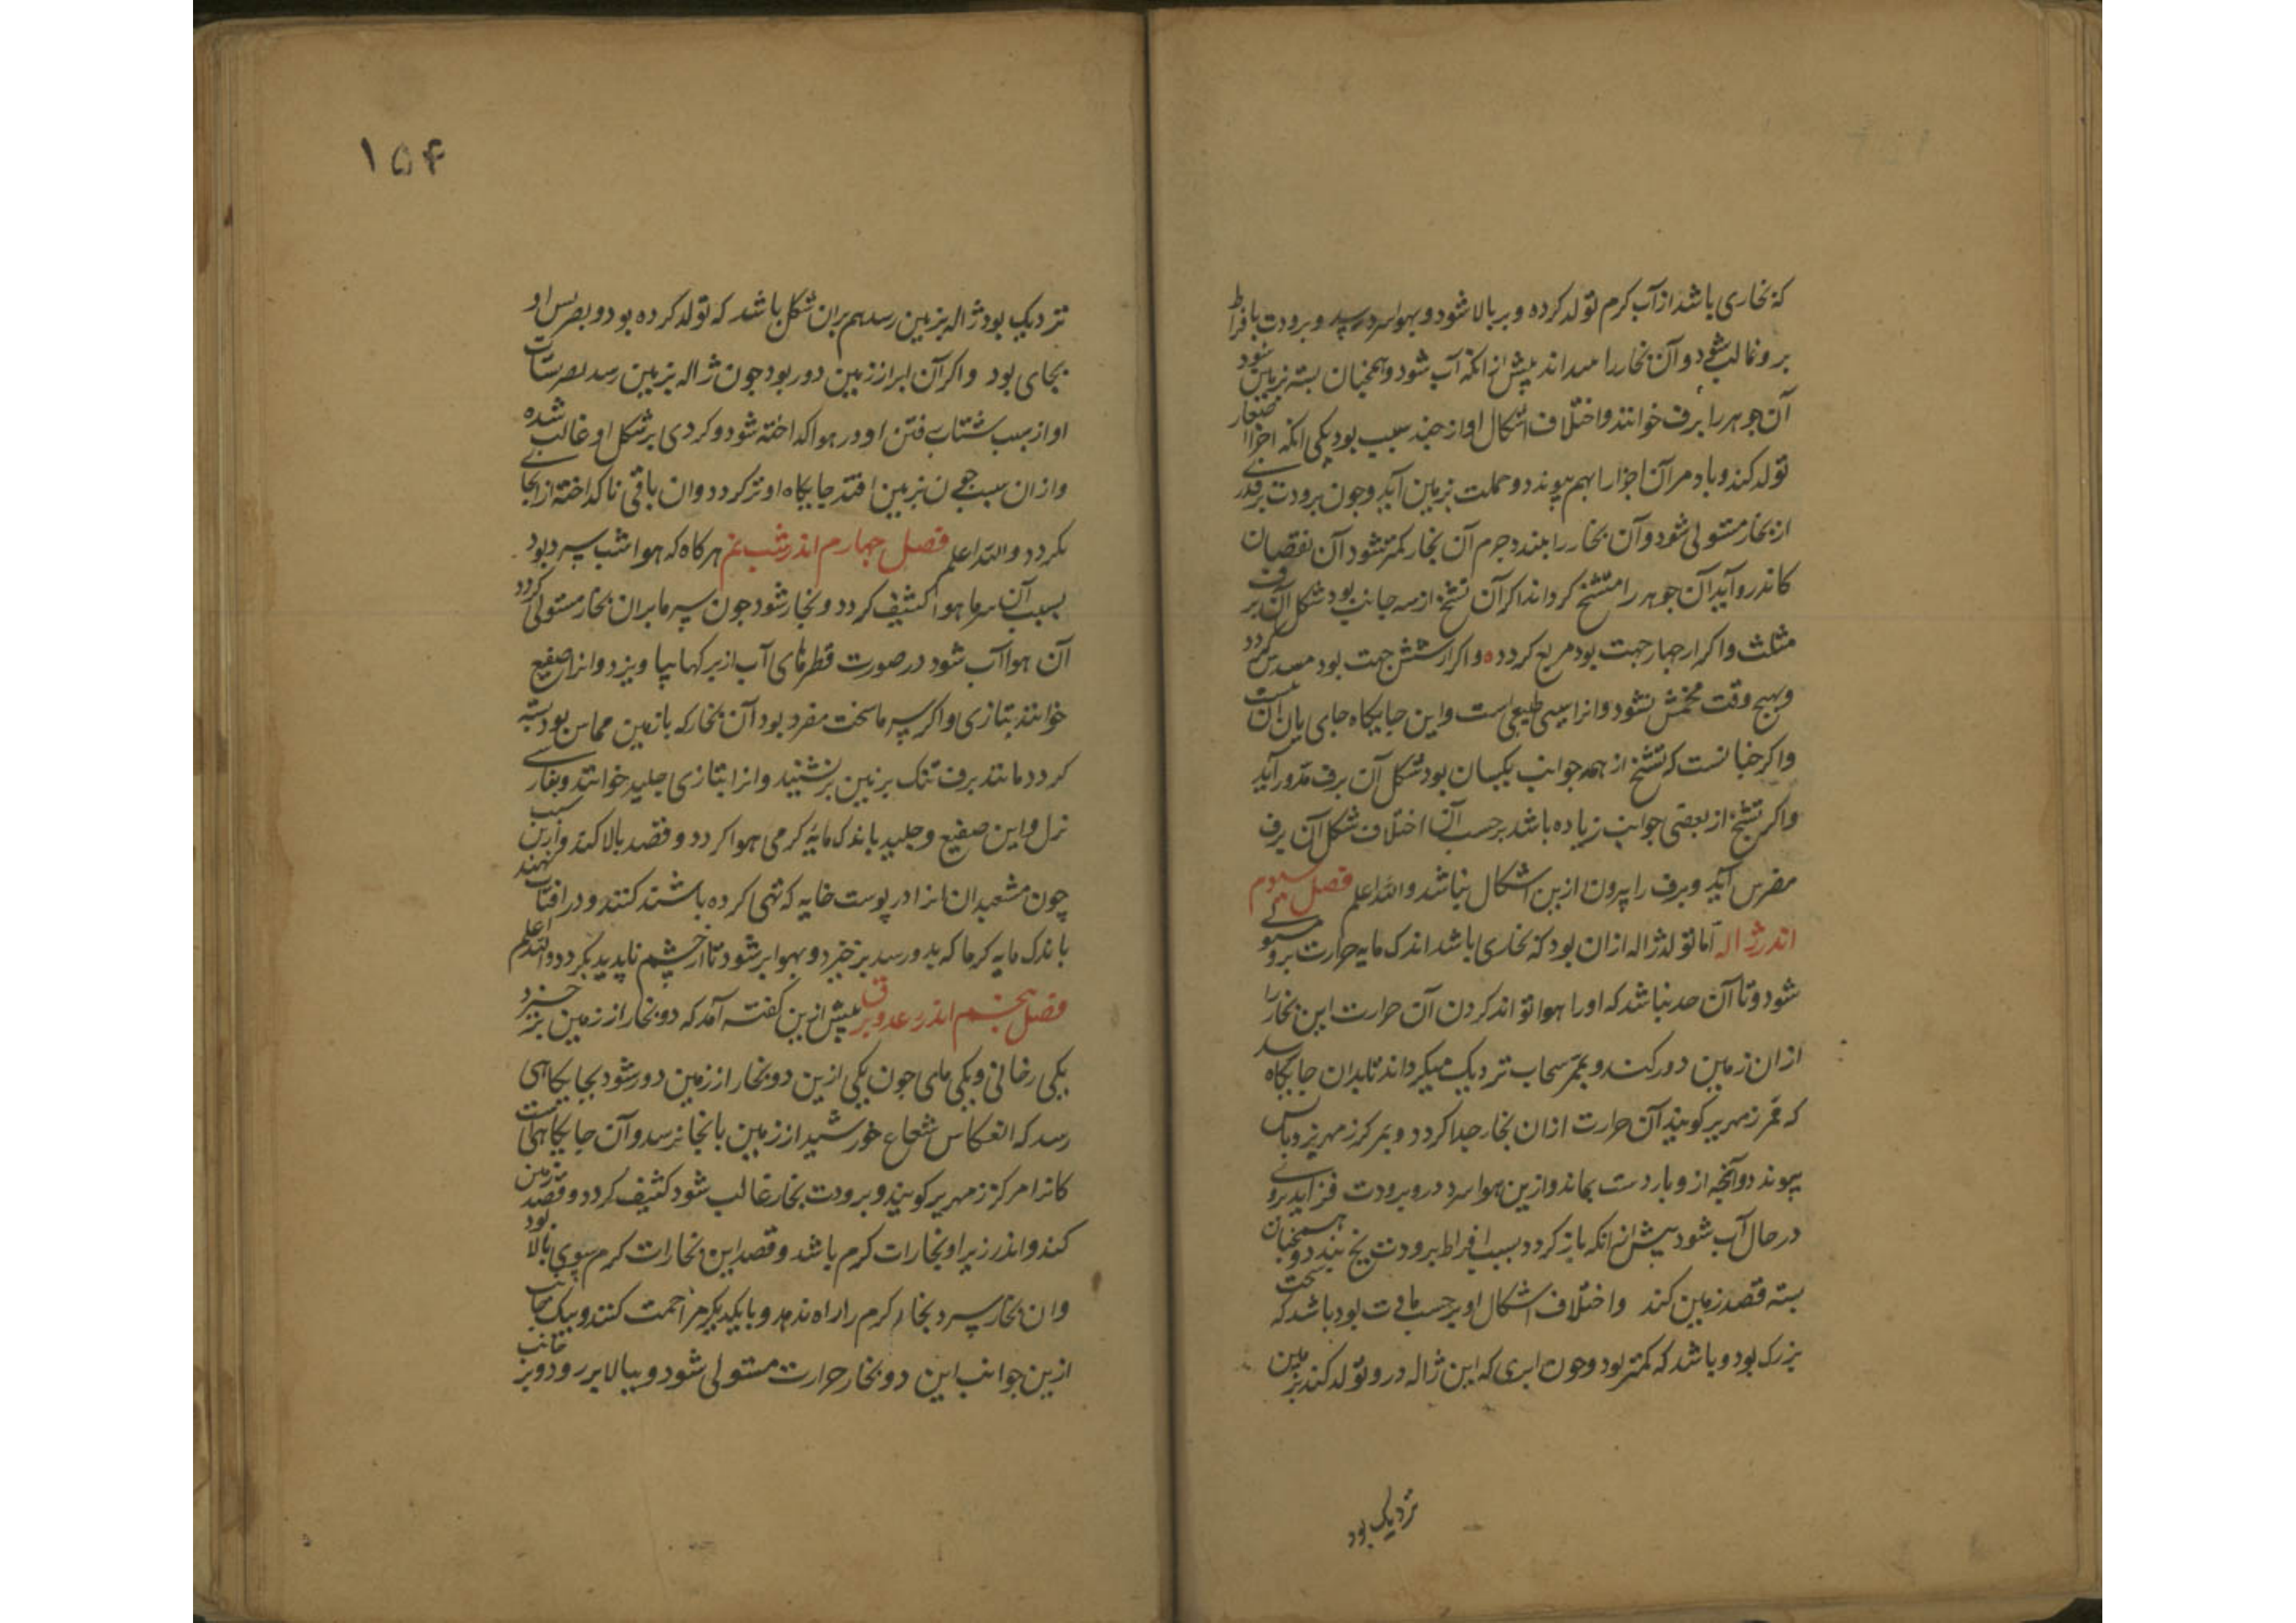 که بخاری باشد از آب کرم تولد کرده و بر بالا شود و بهوا سرد رسد و برودت بافراط
برو غالب شود و آن بخار را ببنداند پیش از انکه آب شود و همچنان بسته بزمین شود
آن جوهر را برف خوانند و اختلاف اشکال او از چند سبب بود یکی انکه اجزا صغار
تولد کند و باد مر آن اجزا را بهم پیوندد و جملت بزمین آید و چون برودت بر قدری
از بخار مستولی شود و آن بخار را ببندد جرم آن بخار کمتر شود آن نقصان
کاندرو آید آن جوهر را متشنج کرداند اکر آن تشنج از سه جانب بود شکل آن برف
مثلث و اکر از چهار جهت بود مربع کردد ه و اکر از شش جهت بود مسدس کردد
و بهیچ وقت مخمس نشود و انرا سببی طبیعی است و این جایکاه جای بیان آن نیست
و اکر چنانست که تشنج از همه جوانب یکسان بود شکل آن برف مدور آید
و اکر تشنج از بعضی جوانب زیاده باشد بر حسب آن اختلاف شکل آن برف
مضرس آید و برف را بیرون ازین اشکال نباشد و الله اعلم فصل سوم
اندر ژاله اما تولد ژاله ازان بود که بخاری باشد اندک مایه حرارت برو مستولی
شود و تا آن حد نباشد که او را هوا تواند کردن آن حرارت این بخار را
از ان زمین دور کند و بممر سحاب نزدیک میکرداند تا بدان جایکاه رسد
که ممر زمهریر کویند آن حرارت ازان بخار جدا کردد و بمرکز زمهریر باس
پیوندد و آنچه ازو باردست بماند و ازین هوا سرد درو برودت فزاید بروی
در حال آب شود پیش از انکه باز کردد بسبب افراط برودت یخ بندد و همچنان
بسته قصد زمین کند و اختلاف اشکال او بر حسب مافت بود باشد که سخت
بزرک بود و باشد که کمتر بود و چون ابری که این ژاله درو تولد کند بزمین
نزدیک بود
۱۵۴
نزدیک بود ژاله بزمین رسد هم بران شکل باشد که تولد کرده بود و تضریس او
بجای بود و اکر آن ابر از زمین دور بود چون ژاله بزمین رسد تضریسات
او از سبب شتاب رفتن او در هوا کداخته شود و کردی بر شکل او غالب شده
و ازان سبب چون بزمین افتد جایکاه او تر کردد و ان باقی ناکداخته از انجا
بکردد و الله اعلم فصل چهارم اندر شب نم هر کاه که هوا شب سرد بود
بسبب آن سرما هوا کثیف کردد و بخار شود چون سرما بران بخار مستولی کردد
آن هوا آب شود در صورت قطرهای آب از برکها بیاویزد و انرا صقیع
خوانند بتازی و اکر سرما سخت مفرد بود آن بخار که با زمین مماس بود بسته
کردد مانند برف تنک بر زمین بر نشیند و انرا بتازی جلید خوانند و بفارسی
نزل و این صقیع و جلید باندک مایه کرمی هوا کردد و قصد بالا کند و ازین سبب
چون مشعبدان انرا در پوست خایه که تهی کرده باشند کنند و در افتاب نهند
باندک مایه کرما که بدو رسد برخیزد و بهوا بر شود تا از چشم ناپدید بکردد والله اعلم
فصل پنجم اندر رعد و برق پیش ازین کفته آمد که دو بخار از زمین برخیزد
یکی دخانی و یکی مای چون یکی ازین دو بخار از زمین دور شود بجایکاهی
رسد که انعکاس شعاع خورشید از زمین بانجا نرسد و آن جایکاهیست
کانرا مرکز زمهریر کویند و برودت بخار غالب شود کثیف کردد و قصد زمین
کند و اندر زیر او بخارات کرم باشد و قصد این بخارات کرم سوی بالا بود
و ان بخار سرد بخار کرم را راه ندهد و با یکدیکر مزاحمت کنند و بیک جانب
ازین جوانب این دو بخار حرارت مستولی شود و ببالا بر رود و بر جانب